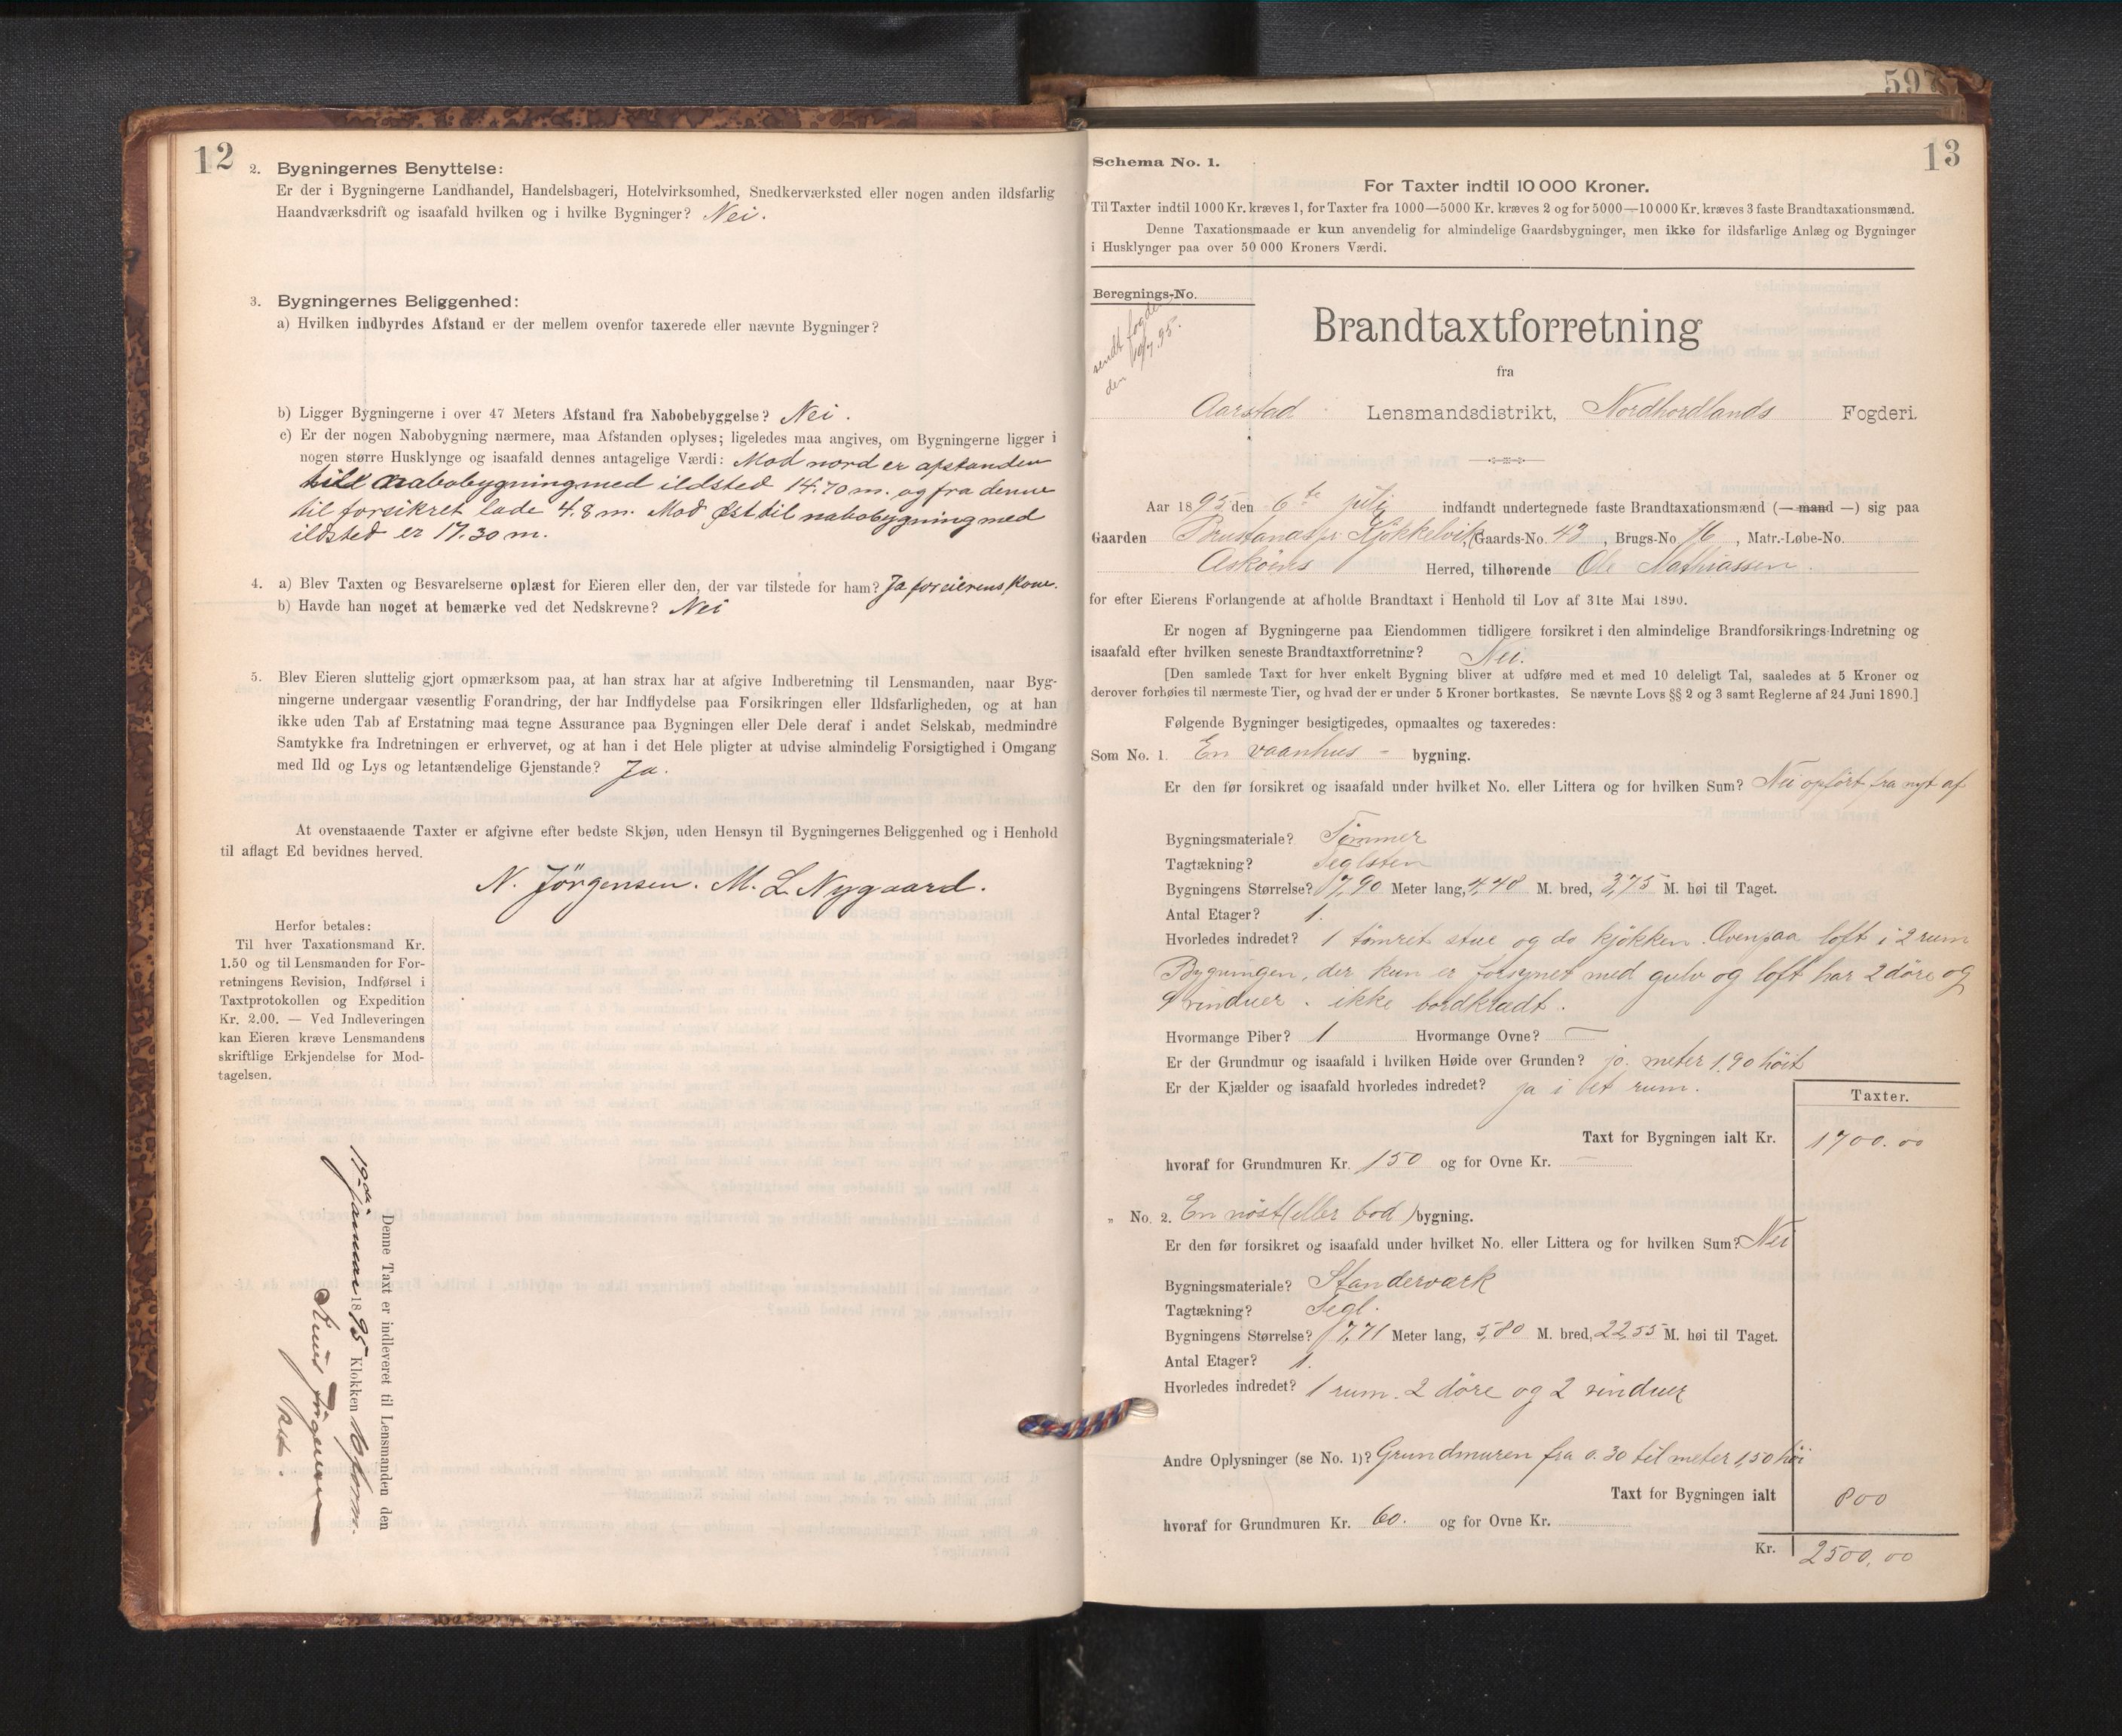 12
2. Bygningernes Benyttelse:
Er der i Bygningerne Landhandel, Handelsbageri, Hotelvirksomhed, Snedkerværksted eller nogen anden ildsfarlig
Haandværksdrift og isaafald hvilken og i hvilke Bygninger? Nei.
3. Bygningernes Beliggenhed:
a) Hvilken indbyrdes Afstand er der mellem ovenfor taxerede eller nævnte Bygninger?
b) Ligger Bygningerne i over 47 Meters Afstand fra Nabobebyggelse? Nei.
c) Er der nogen Nabobygning nærmere, maa Afstanden oplyses; ligeledes maa angives, om Bygningerne ligger i
nogen større Husklynge og isaafald dennes antagelige Værdi: Mod nord er afstanden
till nabobygning med ildsted 14.70 m. og fra denne
til forsikret lade 4.8 m. Mod Øst til nabobygning med
ildsted er 17.30 m.
4. a) Blev Taxten og Besvarelserne oplæst for Eieren eller den, der var tilstede for ham? Ja for eierens kone.
b) Havde han noget at bemærke ved det Nedskrevne? Nei
5. Blev Eieren sluttelig gjort opmærksom paa, at han strax har at afgive Indberetning til Lensmanden, naar Byg-
ningerne undergaar væsentlig Forandring, der har Indflydelse paa Forsikringen eller Ildsfarligheden, og at han
ikke uden Tab af Erstatning maa tegne Assurance paa Bygningen eller Dele deraf i andet Selskab, medmindre
Samtykke fra Indretningen er erhvervet, og at han i det Hele pligter at udvise almindelig Forsigtighed i Omgang
med Ild og Lys og letantændelige Gjenstande? Ja.
At ovenstaaende Taxter er afgivne efter bedste Skjøn, uden Hensyn til Bygningernes Beliggenhed og i Henhold
til aflagt Ed bevidnes herved.
N. Jörgensen. M. L. Nygaard.
Herfor betales:
Til hver Taxationsmand Kr.
1.50 og til Lensmanden for For-
retningens Revision, Indførsel i
Taxtprotokollen og Expedition
Kr. 2.00. — Ved Indleveringen
kan Eieren kræve Lensmandens
skriftlige Erkjendelse for Mod-
tagelsen.
Denne Taxt er indleveret til Lensmanden den
19de januar 1895 Klokken 10 form.
Knud Jörgensen
597
13
Schema No. 1.
For Taxter indtil 10 000 Kroner.
Til Taxter indtil 1000 Kr. kræves 1, for Taxter fra 1000—5000 Kr. kræves 2 og for 5000—10 000 Kr. kræves 3 faste Brandtaxationsmænd.
Denne Taxationsmaade er kun anvendelig for almindelige Gaardsbygninger, men ikke for ildsfarlige Anlæg og Bygninger
i Husklynger paa over 50 000 Kroners Værdi.
Beregnings-No.
sendt fogden
den 19/7.95.
Brandtaxtforretning
fra
Aarstad Lensmandsdistrikt, Nordhordlands Fogderi.
Aar 1895 den 6te juli indfandt undertegnede faste Brandtaxationsmænd (—mand—) sig paa
Gaarden Kjøkkelvik, Gaards-No. 43, Brugs-No 16, Matr.-Løbe-No.
Askøens Herred, tilhørende Ole Mathiassen.
for efter Eierens Forlangende at afholde Brandtaxt i Henhold til Lov af 31te Mai 1890.
Er nogen af Bygningerne paa Eiendommen tidligere forsikret i den almindelige Brandforsikrings-Indretning og
isaafald efter hvilken seneste Brandtaxtforretning? Nei.
[Den samlede Taxt for hver enkelt Bygning bliver at udføre med et med 10 deleligt Tal, saaledes at 5 Kroner og
derover forhøies til nærmeste Tier, og hvad der er under 5 Kroner bortkastes. Se nævnte Lovs §§ 2 og 3 samt Reglerne af 24 Juni 1890.]
Følgende Bygninger besigtigedes, opmaaltes og taxeredes:
Som No. 1. En vaanhus- bygning.
Er den før forsikret og isaafald under hvilket No. eller Littera og for hvilken Sum? Nei opført fra nyt af
Bygningsmateriale? Tømmer
Tagtækning? Teglsten
Bygningens Størrelse? 7,90 Meter lang, 4,48 M. bred, 3,75 M. høi til Taget.
Antal Etager? 1.
Hvorledes indredet? 1 tømret stue og do kjøkken. Ovenpaa loft i 2 rum
Bygningen, der kun er forsynet med gulv og loft har 2 døre og
9 vinduer. ikke bordklædt.
Hvormange Piber? 1 Hvormange Ovne? —
Er der Grundmur og isaafald i hvilken Høide over Grunden? jo. meter 1.90 höit
Er der Kjælder og isaafald hvorledes indredet? ja i bet rum.
Taxter.
Taxt for Bygningen ialt Kr. 1700.00
hvoraf for Grundmuren Kr. 150 og for Ovne Kr. —
„ No. 2. En nöst (eller bod) bygning.
Er den før forsikret og isaafald under hvilket No. eller Littera og for hvilken Sum? Nei
Bygningsmateriale? Standerværk
Tagtækning? Tegl.
Bygningens Størrelse? 7,71 Meter lang, 5,80 M. bred, 2255 M. høi til Taget.
Antal Etager? 1.
Hvorledes indredet? 1 rum. 2 døre og 2 vinduer
Andre Oplysninger (se No. 1)? Grundmuren fra 0.30 til meter 1,50 høi
Taxt for Bygningen ialt 800
hvoraf for Grundmuren Kr. 60. og for Ovne Kr.
Kr. 2500.00